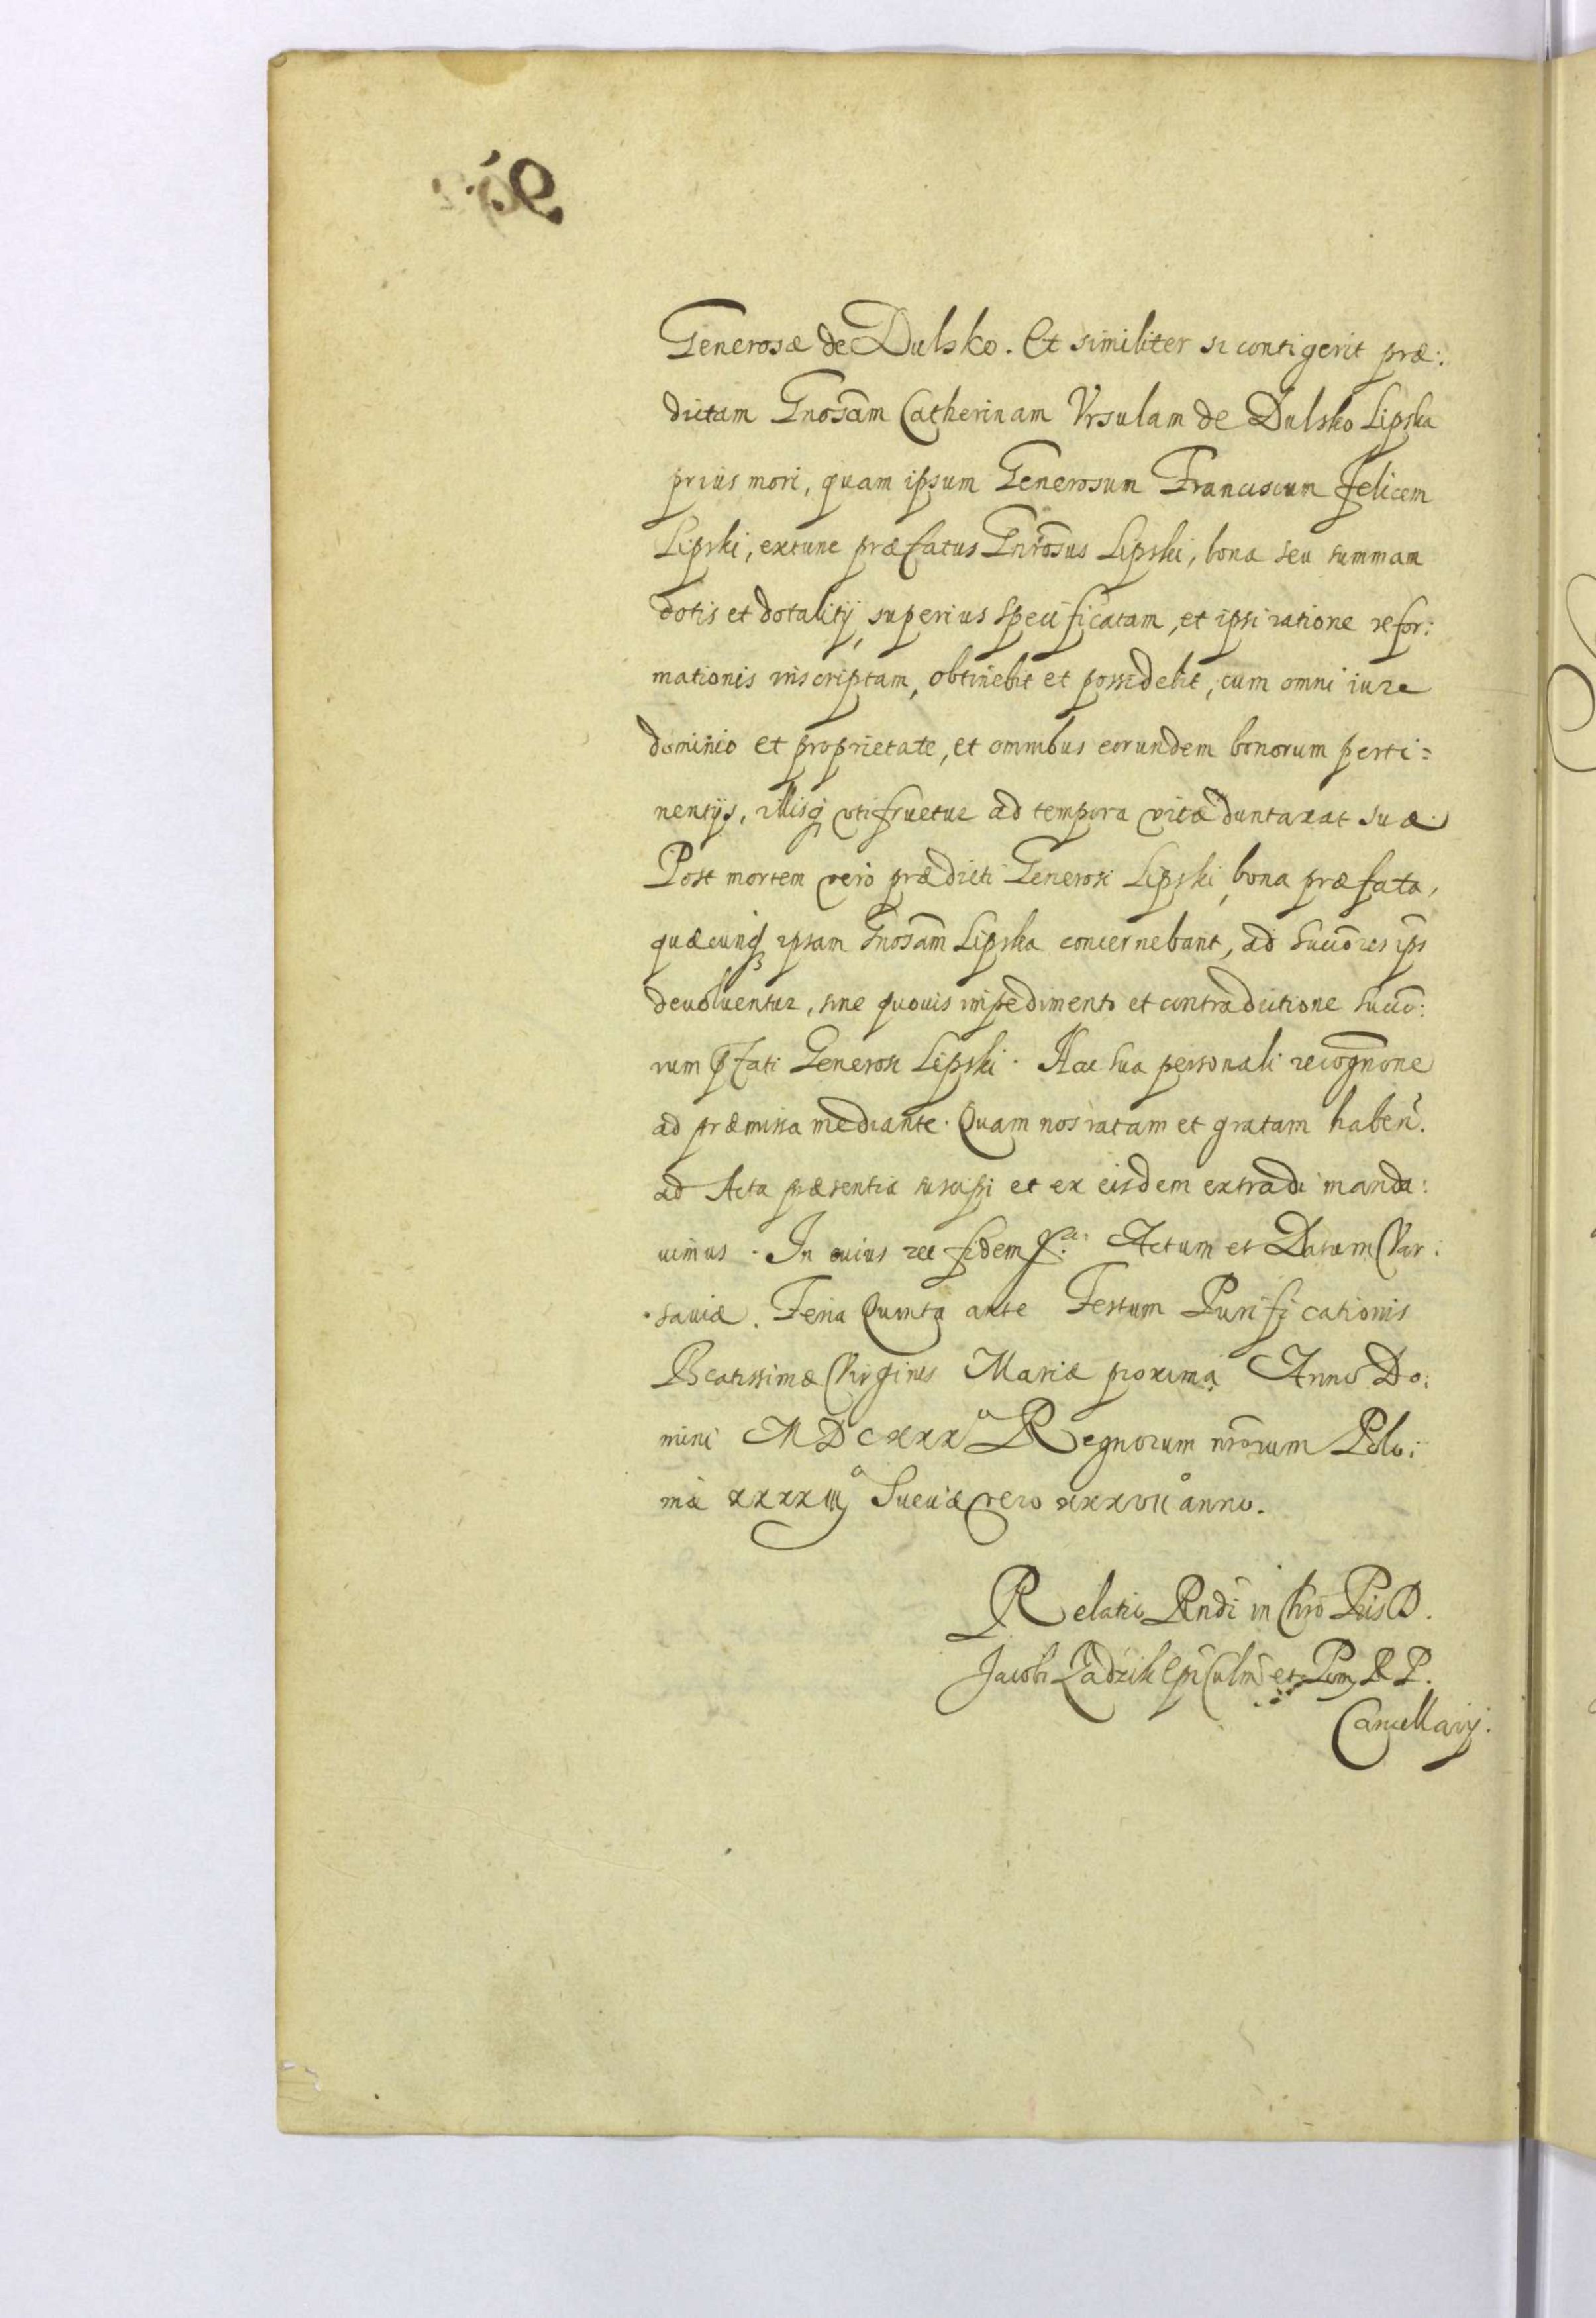 Generosæ de Dulsko. Et similiter si contigerit præ:
dictam Gnosam Catherinam Vrsulam de Dulsko Lipska
prius mori, quam ipsum Generosum Franciscum Felicem
Lipski, extunc præfatus Gnrosus Lipski, bona seu summam
dotis et dotalitij superius specificatam, et ipsi ratione refor:
mationis inscriptam, obtinebit et possidebit, cum omni iure
dominio et proprietate, et omnibus eorundem bonorum perti=
nentijs, illisq vtifruetur ad tempora vitæ duntaxat suæ.
Post mortem vero prædicti Generosi Lipski, bona præfata,
quæcunq ipsam Gnosam Lipska concernebant, ad succores ips
deuoluentur, sine quouis impedimento et contradictione succo:
rum pfati Generosi Lipski. Hac sua personali recognone
ad præmissa mediante. Quam nos ratam et gratam haben.
ad Acta præsentia suscipi et ex eisdem extradi manda:
uimus. In cuius rei fidem Actum et Datum Var:
sauiæ. Feria Quinta ante Festum Purificationis
Beatissimæ Virginis Mariæ proxima Anno Do:
mini MDCXXXo Regnorum nrorum Polo:
niæ xxxxiijo Sueciæ vero xxxviio anno.
Relatio Rndi in Chro Pris D.
Jacobi Zadzik Epi Culm et Pom, R P.
Cancellarij.